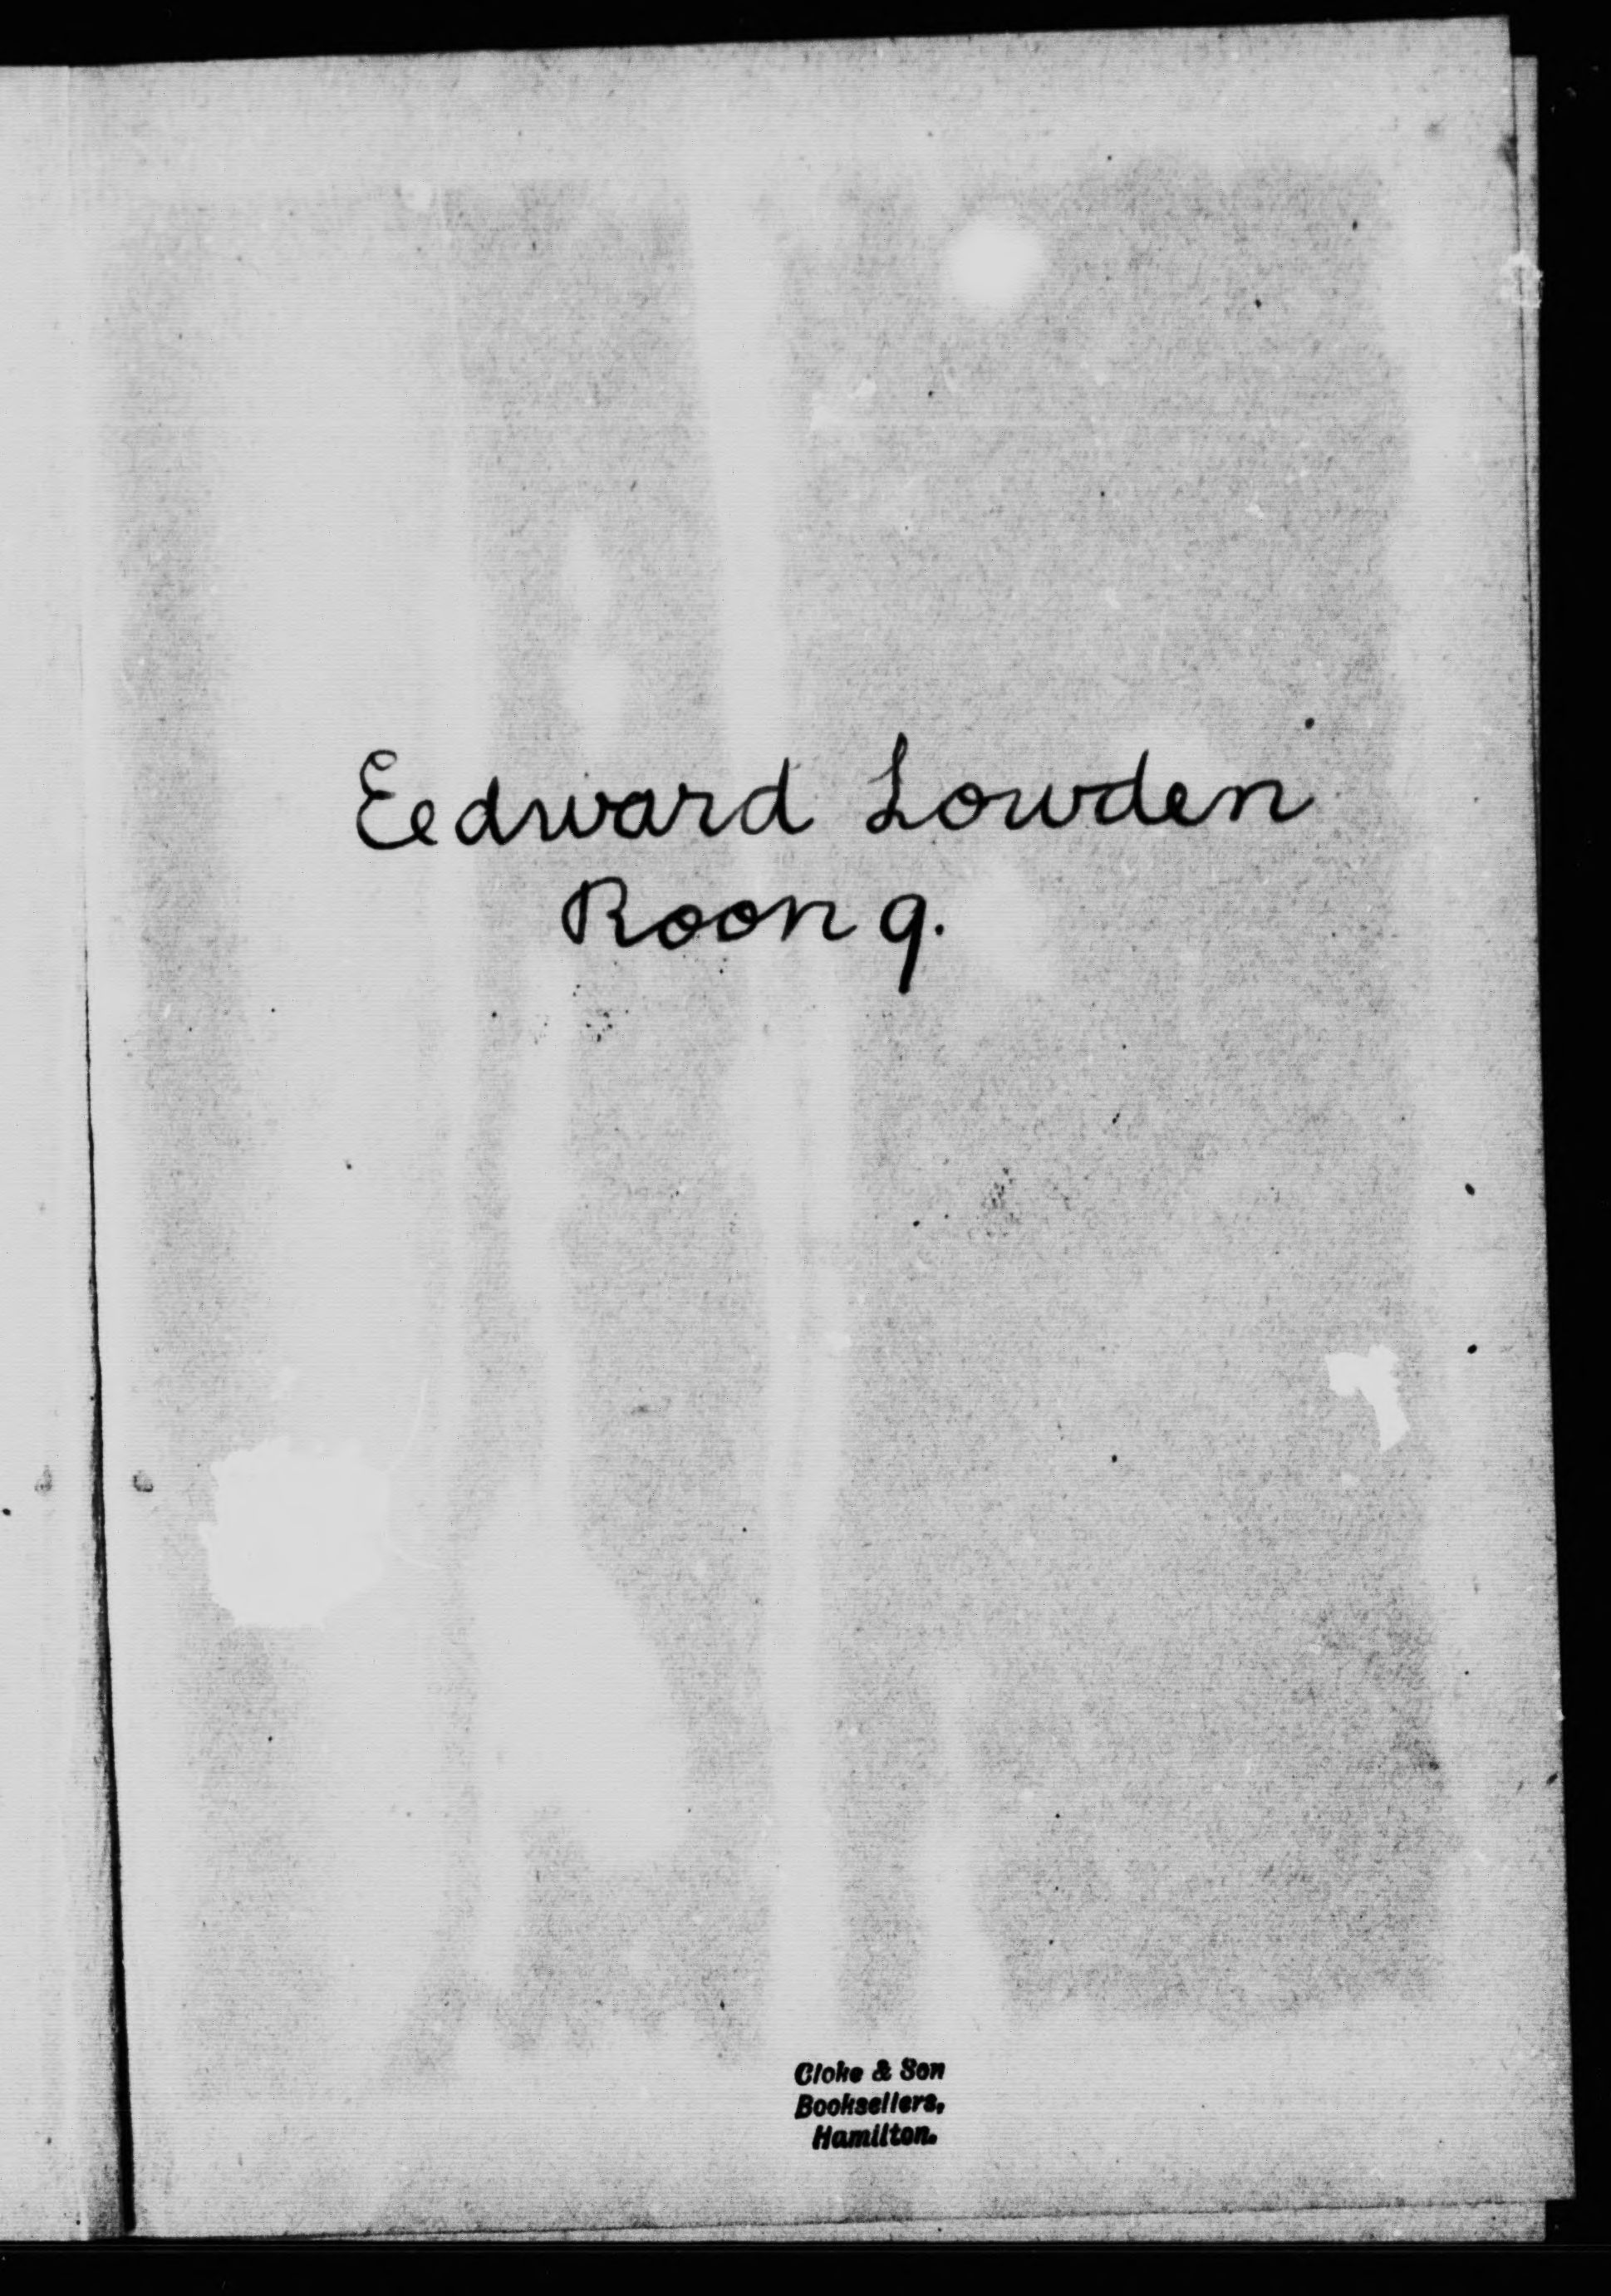 Eedward Lowden
Roon 9.
Cloke & Son
Booksellers,
Hamilton.